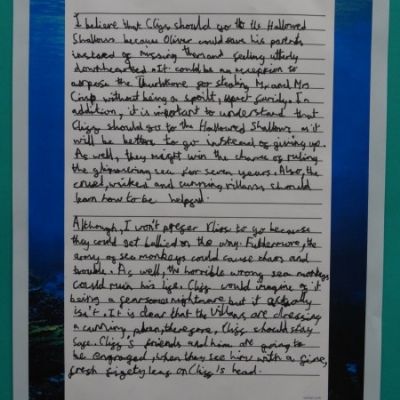 I believe that Cliff should go to the Hallowed
Shallows because Oliver could save his parents
instead of missing them and feeling utterly
downhearted. It could be an exception to
oppose the Thunderbone for stealing Mr and Mrs
Crisp without being a spoilt, upset family. In
addition, it is important to understand that
Cliff should go to the Hallowed Shallows as it
will be better to go instead of giving up.
As well, they might win the chance of ruling
the glimmering sea for seven years. Also, the
cruel, wicked and cunning villains should
learn how to be helpful.
Although, I won't prefer Cliff to go because
they could get bullied on the way. Futhermore, the
army of sea monkeys could cause chaos and
trouble. As well, the horrible wrong sea monkeys
could ruin his life. Cliff would imagine as it
being a fearsome nightmare but it actually
isn't. It is clear that the villans are dressing
a cunning plan, therefore, Cliff should stay
safe. Cliff's friends and him are going to
be engraged, when they see him with a fine,
fresh on Cliff's head.